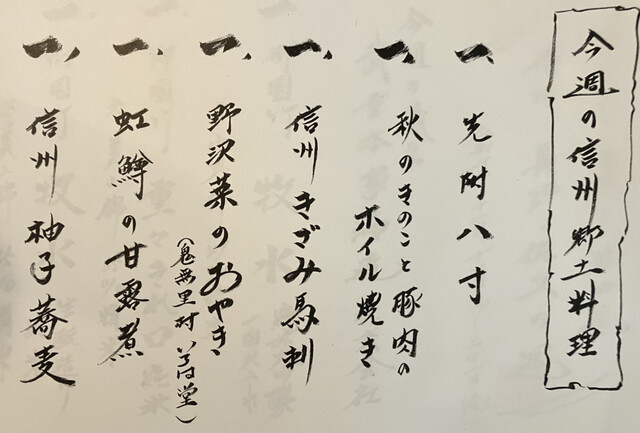 今週の信州郷土料理
一、先附八寸
一、秋のきのこと豚肉の
ホイル焼き
一、信州きざみ馬刺
一、野沢菜のおやき
(鬼無里村 いろは堂)
一、虹鱒の甘露煮
一、信州柚子蕎麦